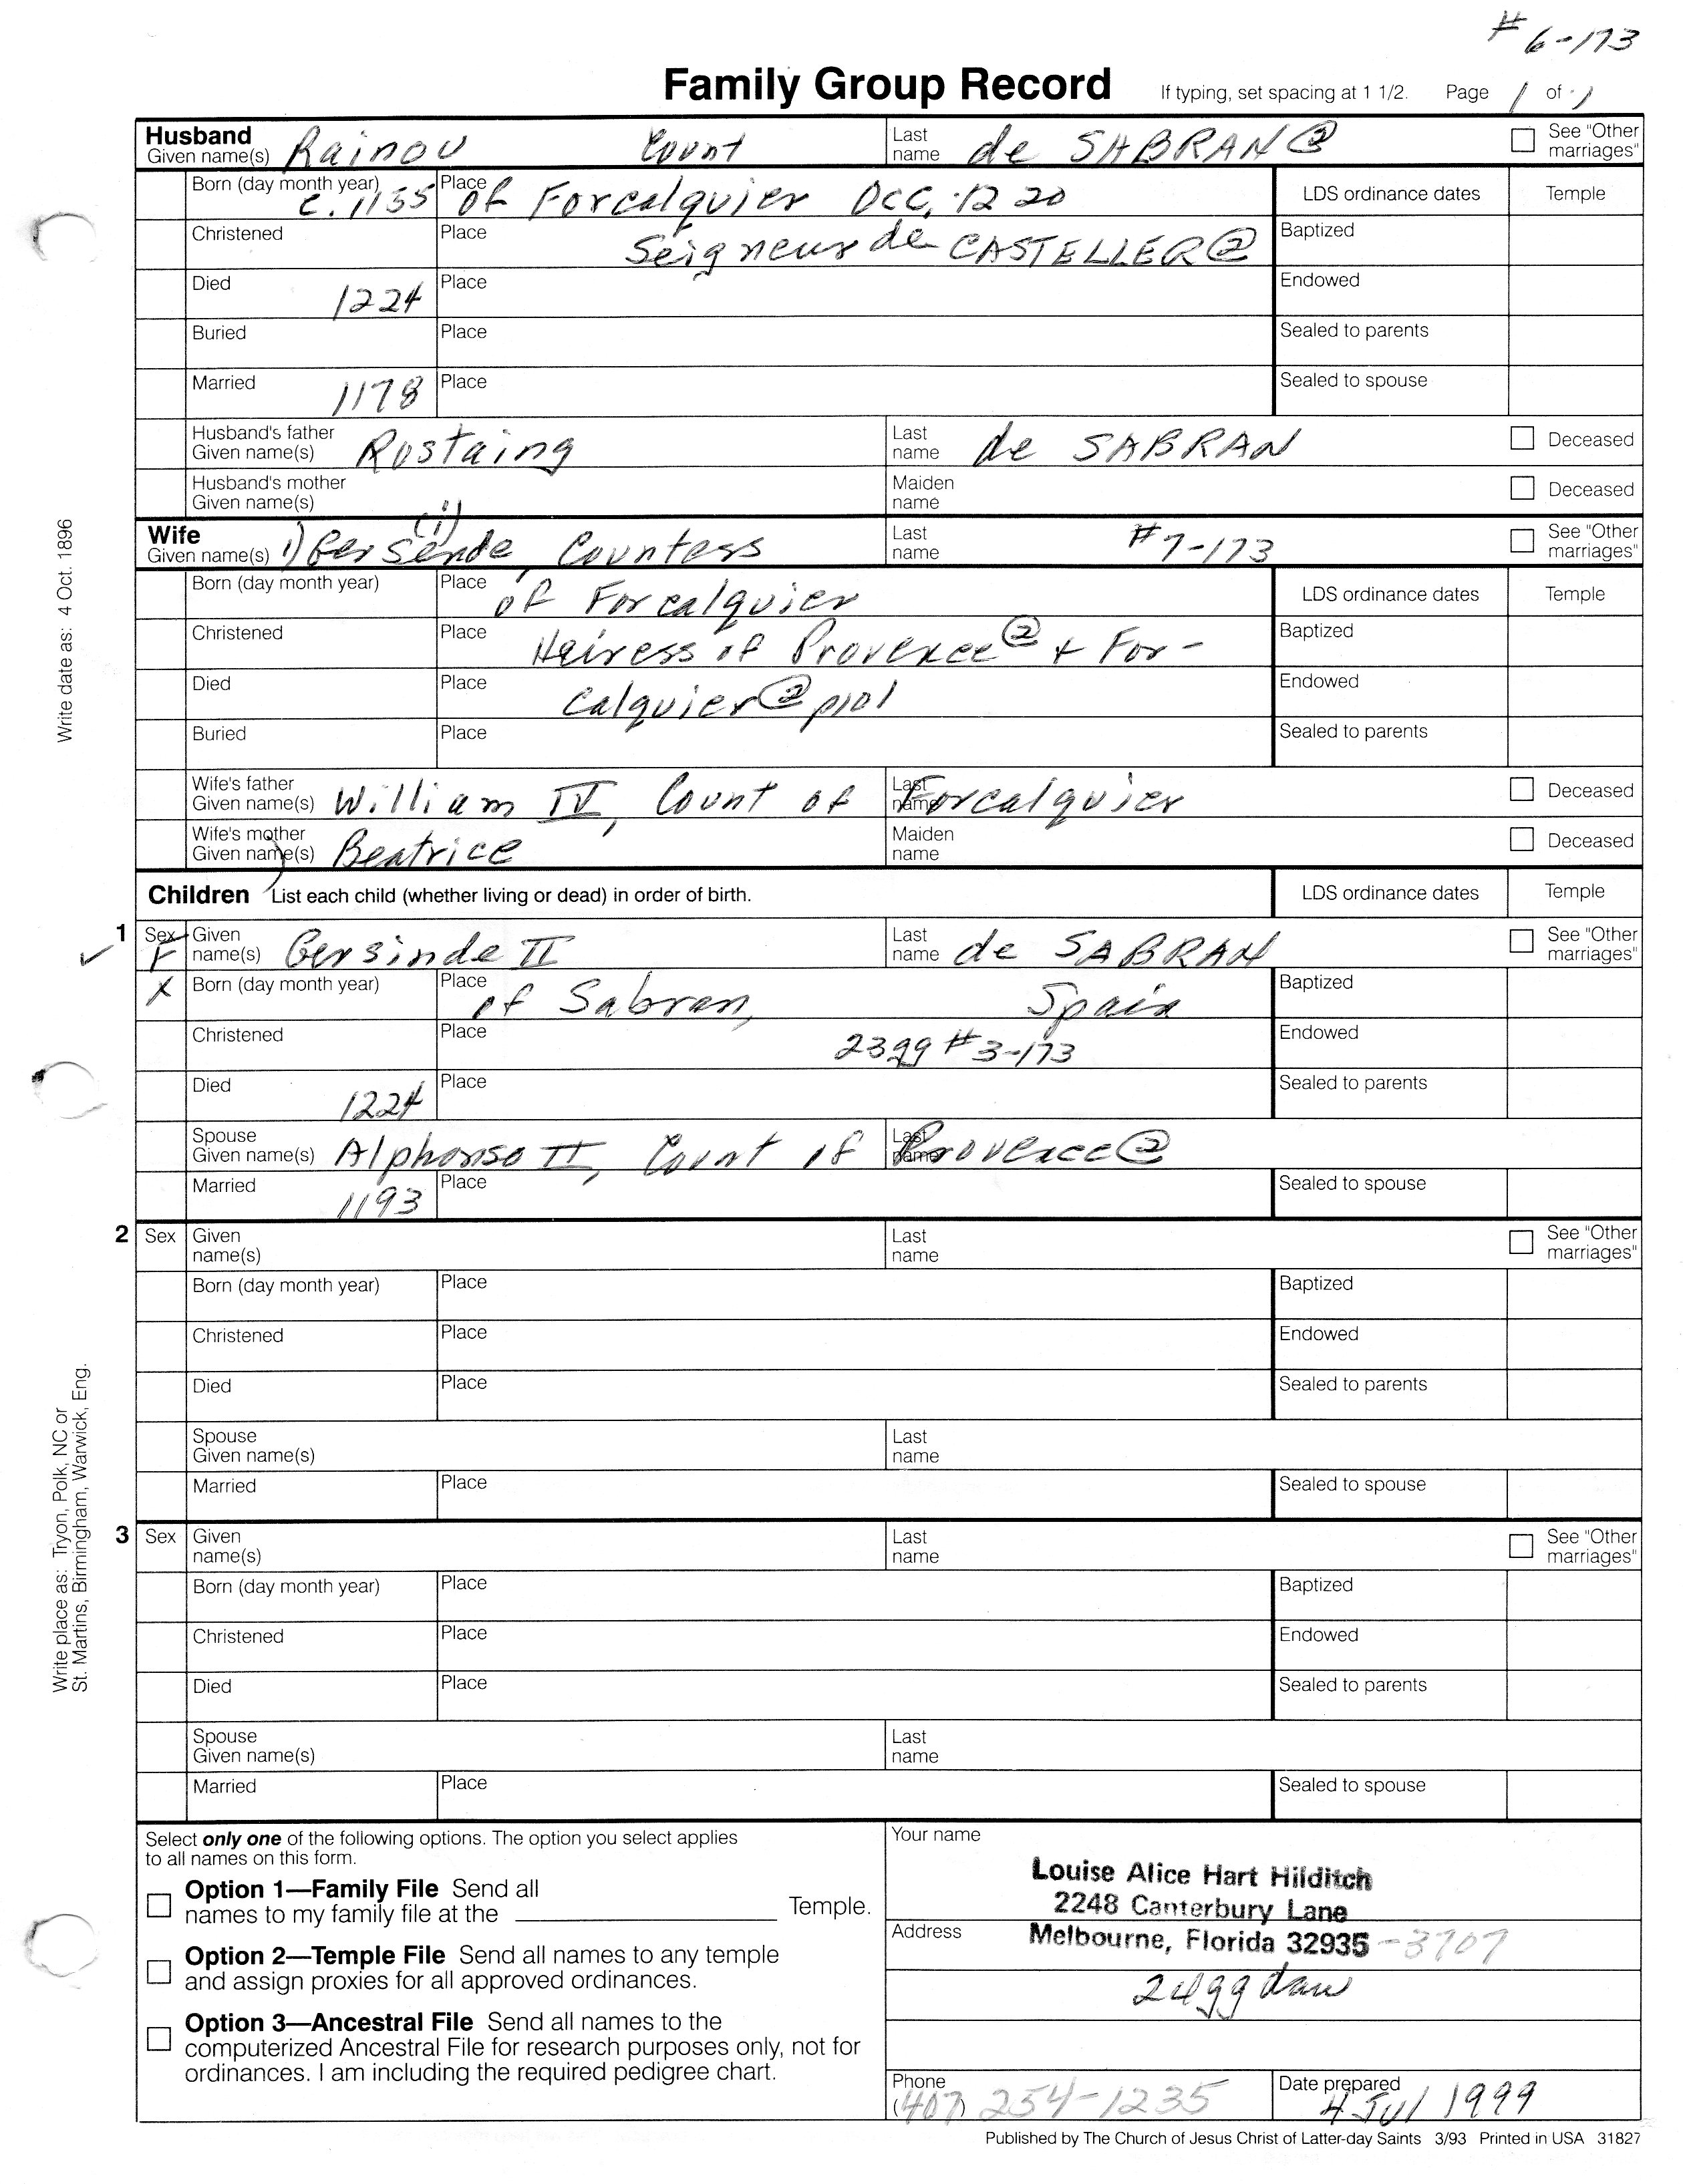 # 6-173
Family Group Record If typing, set spacing at 1 1/2. Page 1 of 1
Husband Given name(s) Rainou Count Last name de SABRAN @ See "Other marriages"
Born (day month year) c. 1155 Place of Forcalquier Occ. 1220 LDS ordinance dates Temple
Christened Place Seigneur de CASTELLER @ Baptized
Died 1224 Place Endowed
Buried Place Sealed to parents
Married 1178 Place Sealed to spouse
Husband's father Given name(s) Rostaing Last name de SABRAN Deceased
Husband's mother Given name(s) Maiden name Deceased
Wife Given name(s) 1) Gersende (i) Countess Last name #7-173 See "Other marriages"
Born (day month year) Place of Forcalquier LDS ordinance dates Temple
Christened Place Heiress of Provence @ + For- Baptized
Died Place calquier @ p101 Endowed
Buried Place Sealed to parents
Wife's father Given name(s) William IV, Count of Last name Forcalquier Deceased
Wife's mother Given name(s) Beatrice Maiden name Deceased
Children List each child (whether living or dead) in order of birth. LDS ordinance dates Temple
1 Sex F Given name(s) Gersinde II Last name de SABRAN See "Other marriages"
X Born (day month year) Place of Sabran, Spain Baptized
Christened Place 23gg #3-173 Endowed
Died 1224 Place Sealed to parents
Spouse Given name(s) Alphonso II, Count of Last name Provence @
Married 1193 Place Sealed to spouse
2 Sex Given name(s) Last name See "Other marriages"
Born (day month year) Place Baptized
Christened Place Endowed
Died Place Sealed to parents
Spouse Given name(s) Last name
Married Place Sealed to spouse
3 Sex Given name(s) Last name See "Other marriages"
Born (day month year) Place Baptized
Christened Place Endowed
Died Place Sealed to parents
Spouse Given name(s) Last name
Married Place Sealed to spouse
Select only one of the following options. The option you select applies
to all names on this form.
Option 1—Family File Send all
names to my family file at the Temple.
Option 2—Temple File Send all names to any temple
and assign proxies for all approved ordinances.
Option 3—Ancestral File Send all names to the
computerized Ancestral File for research purposes only, not for
ordinances. I am including the required pedigree chart.
Your name
Louise Alice Hart Hilditch
2248 Canterbury Lane
Address Melbourne, Florida 32935-3707
24gg dau
Phone (407) 254-1235 Date prepared 4 Jul 1999
Published by The Church of Jesus Christ of Latter-day Saints 3/93 Printed in USA 31827
Write date as: 4 Oct. 1896
Write place as: Tryon, Polk, NC or
St. Martins, Birmingham, Warwick, Eng.